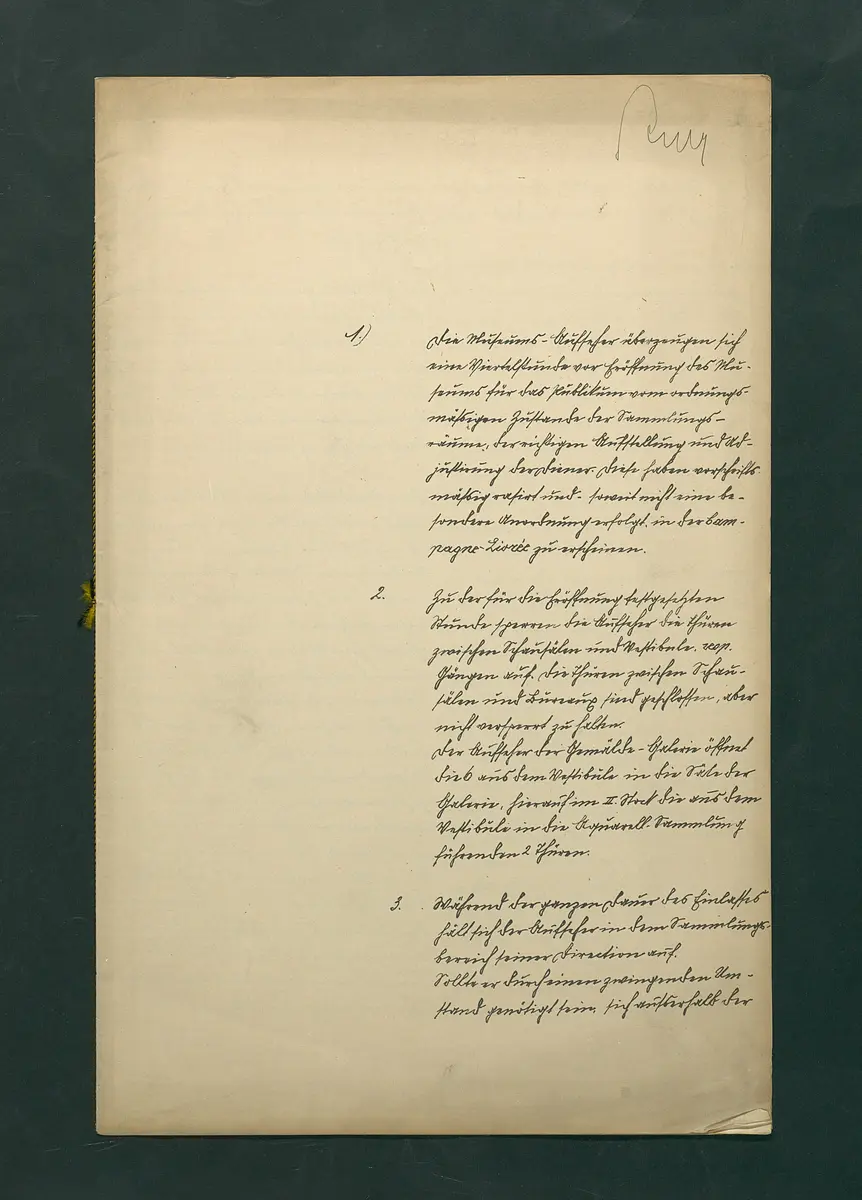 1.)
Die Museums-Aufseher überzeugen sich
eine Viertelstunde vor Eröffnung des Mu-
seums für das Publikum vom ordnungs-
mässigen Zustande der Sammlungs-
räume, der richtigen Aufstellung und Ad-
justirung der Diener. Diese haben vorschrifts-
mässig rasirt und, soweit nicht eine be-
sondere Anordnung erfolgt, in der Cam-
pagne-Livrée zu erscheinen.
2.
Zu der für die Eröffnung festgesetzten
Stunde sperren die Aufseher die Thüren
zwischen Schausälen und Vestibule, resp.
Gängen auf. Die Thüren zwischen Schau-
sälen und Bureaux sind geschlossen, aber
nicht versperrt zu halten.
Der Aufseher der Gemälde-Galerie öffnet
die 6 aus dem Vestibule in die Säle der
Galerie, hierauf im II. Stock die aus dem
Vestibule in die Aquarell-Sammlung
führenden 2 Thüren.
3.
Während der ganzen Dauer des Einlasses
hält sich der Aufseher in dem Sammlungs-
bereich seiner Direction auf.
Sollte er durch einen zwingenden Um-
stand genötigt sein, sich ausserhalb der